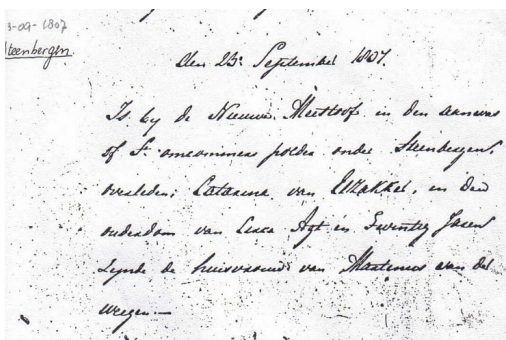 3-09-1807
teenbergen.
den 23e September 1807.
Is by de Nieuwe Meestoof in den aanwas
of St. omcommers polder onder Steenbergen,
overleden; Catarina van Elzakker, in den
ouderdom van Circa Agt en Twintig Jaren
Zynde de huisvrouw van Martinus van der
Weegen.—